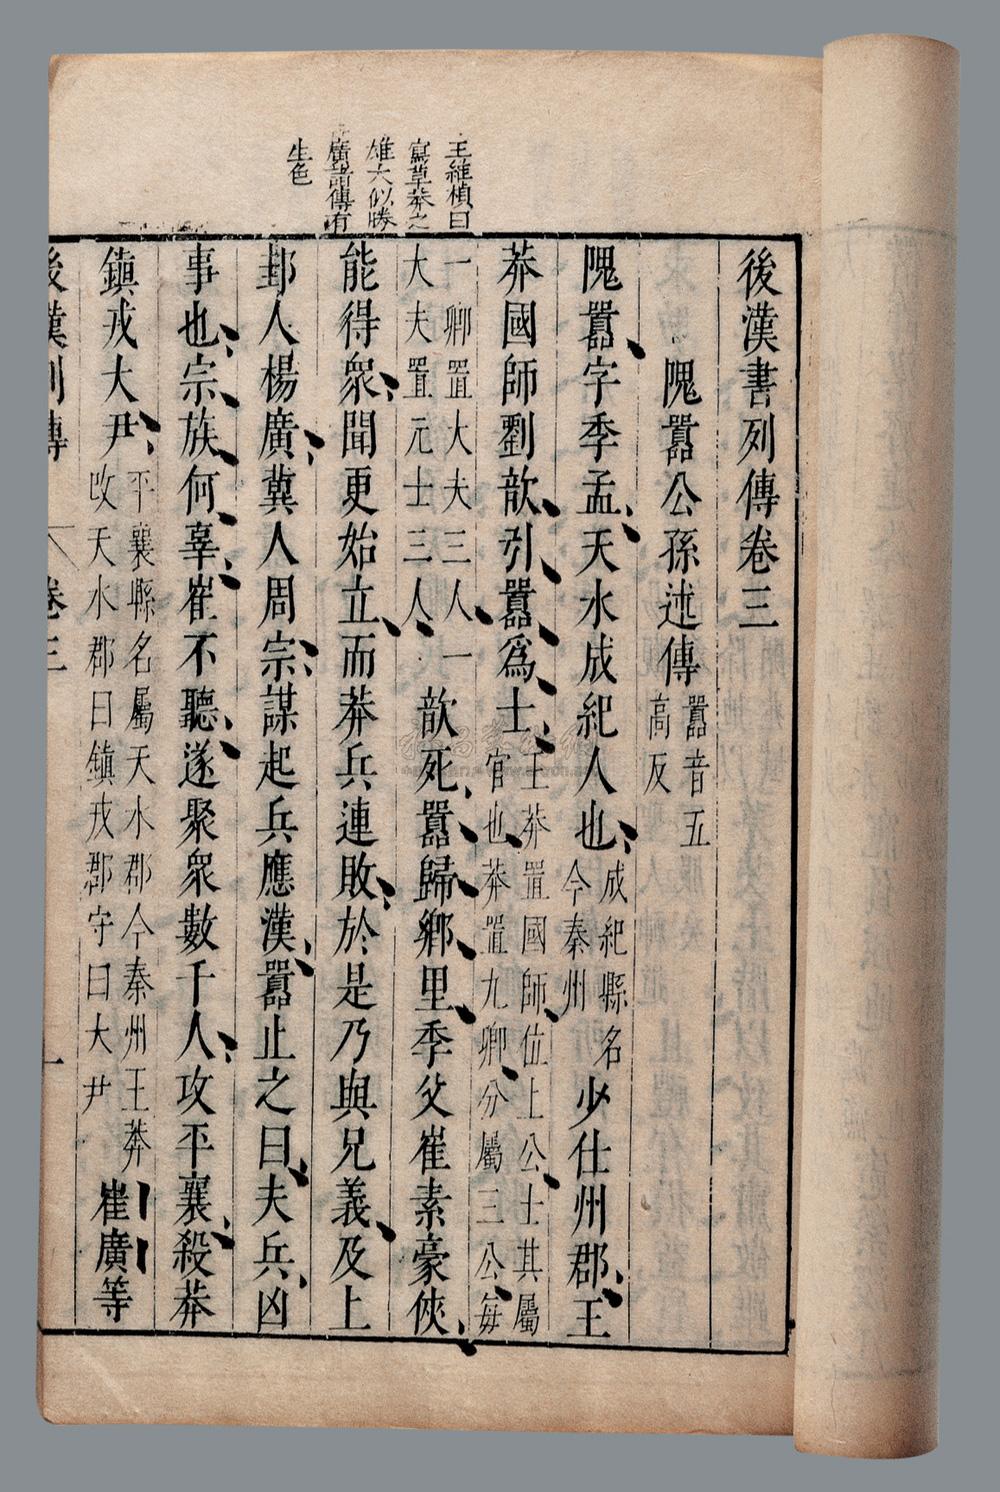 王維楨曰
寫草莽之
雄大似勝
廣諸傳有
生色
後漢書列傳卷三
隗囂公孫述傳
囂音五
高反
隗囂字季孟天水成紀人也
成紀縣名
今秦州
少仕州郡王
莽國師劉歆引囂爲士
王莽置國師位上公士其屬
官也莽置九卿分屬三公每
一卿置大夫三人一
大夫置元士三人
歆死囂歸鄉里季父崔素豪俠
能得衆聞更始立而莽兵連敗於是乃與兄義及上
邽人楊廣兾人周宗謀起兵應漢囂止之曰夫兵凶
事也宗族何辜崔不聽遂聚衆數千人攻平襄殺莽
鎮戎大尹
平襄縣名屬天水郡今秦州王莽
改天水郡曰鎮戎郡守曰大尹
崔廣等
後漢列傳 卷三 一